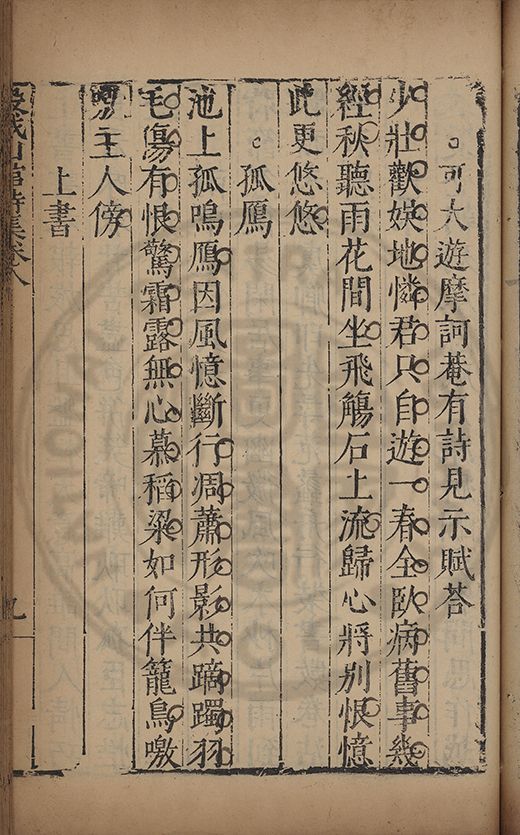 可大遊摩訶菴有詩見示賦荅
少壯歡娛地憐君只自遊一春全臥病舊事幾
經秋聽雨花間坐飛觴石上流歸心將別恨憶
此更悠悠
孤鴈
池上孤鳴鴈因風憶斷行凋蕭形影共蹢躅羽
毛傷有恨驚霜露無心慕稻粱如何伴籠鳥噭
噭主人傍
上書
山館詩集卷八
九